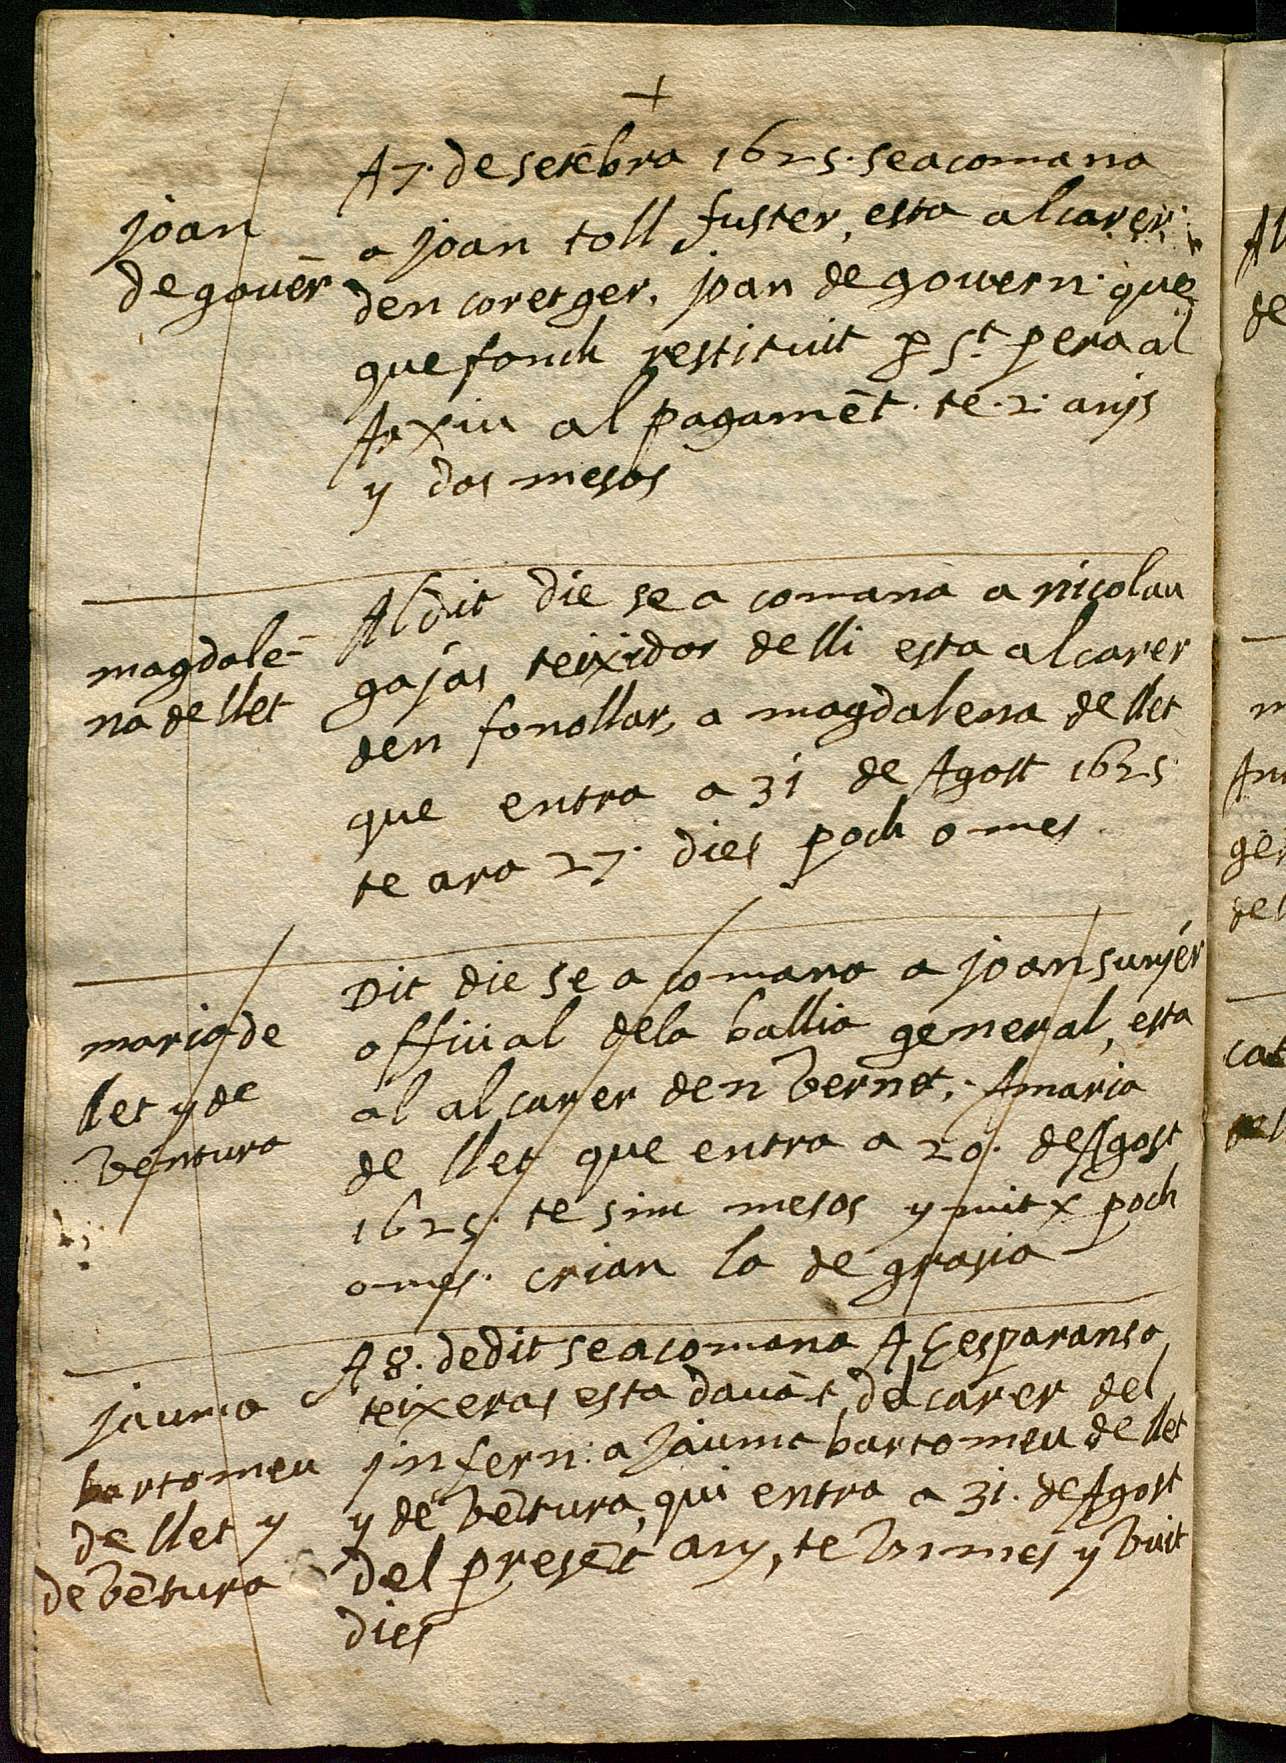 +
A 7. de setēbra 1625. se acomana
joan
de gouēr
a joan toll fuster, esta al carer
den coretger. joan de gowern que
que fonch restituit p St pera al
Arxiu al pagamēt. te. 2. anys
y dos mesos
Al dit die se a comana a nicolau
magdalē-
na de llet
gajas teixidor de lli esta al carer
den fonollar, a magdalena de llet
que entra a 31 de Agost 1625
te ara 27. dies poch o mes
Dit die se a comana a joan sunyer
maria de
llet y de
ventura
offisial dela ballia general, esta
al al carer den vernet. A maria
de llet que entra a 20. de Agost
1625. te sinc mesos y mitx poch
o mes. crian la de grasia
A 8. de dit se acomana A esparansa
jauma
bartomeu
de llet y
de vētura
teixeras esta dauāt del carer del
jnfern. a jaume bartomeu de llet
y de vētura, qui entra a 31. de Agost
del presēt any, te vn mes y vuit
dies
Al
de
m
An
ger
del
cat